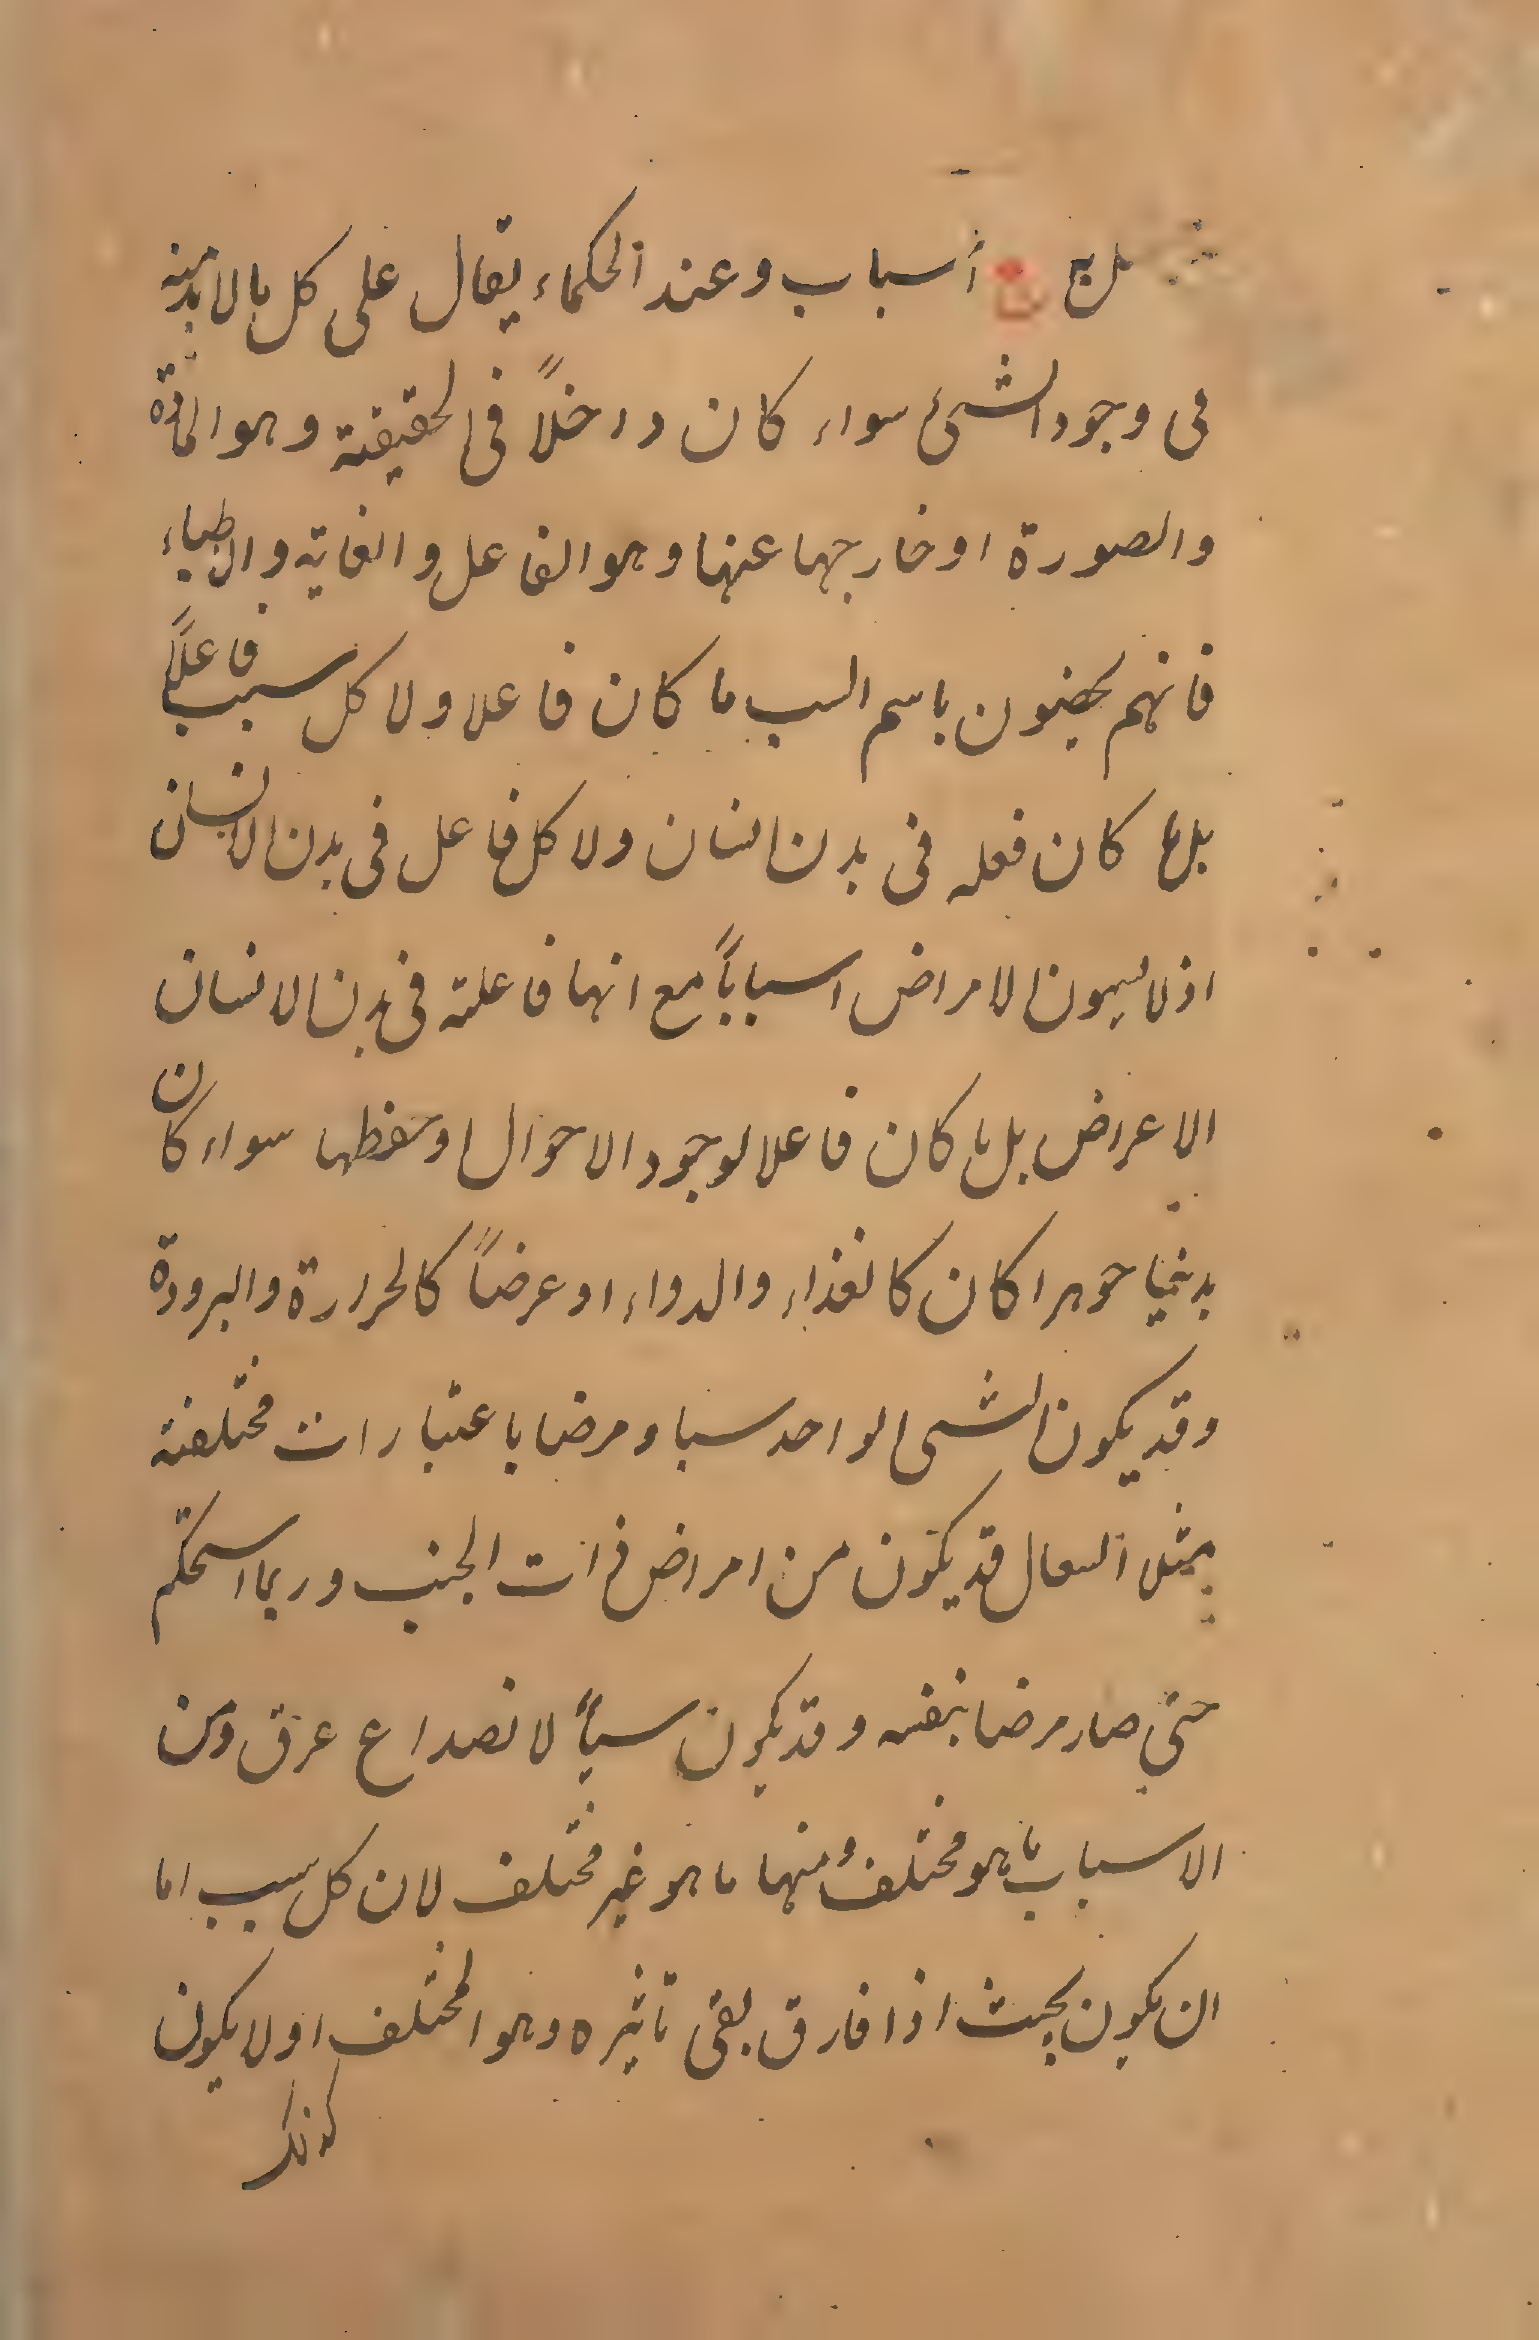 أسباب وعند الحكماء يقال على كل مالابد منه
فى وجود الشئ سواء كان داخلاً فى الحقيقة وهو المادة
والصورة او خارجها عنها وهو الفاعل والغاية والاطباء
فانهم يعنون باسم السبب ما كان فاعلا ولا كل سبب فاعلاً
بل ما كان فعله فى بدن انسان ولا كل فاعل فى بدن الانسان
اذ لا يسمون الامراض اسباباً مع انها فاعلة فى بدن الانسان
الاعراض بل ما كان فاعلا لوجود الاحوال او حفظها سواء كان
بدنيا جوهرا كان كالغذاء والدواء او عرضاً كالحرارة والبرودة
وقد يكون الشى الواحد سببا ومرضا باعتبارات مختلفة
مثل السعال قد يكون من امراض ذات الجنب وربما استحكم
حتى صار مرضا بنفسه وقد يكون سبباً لانصداع عرق ومن
الاسباب ما هو مختلف ومنها ما هو غير مختلف لان كل سبب اما
ان يكون بحيث اذا فارق بقى تاثيره وهو المختلف او لا يكون
كذلك